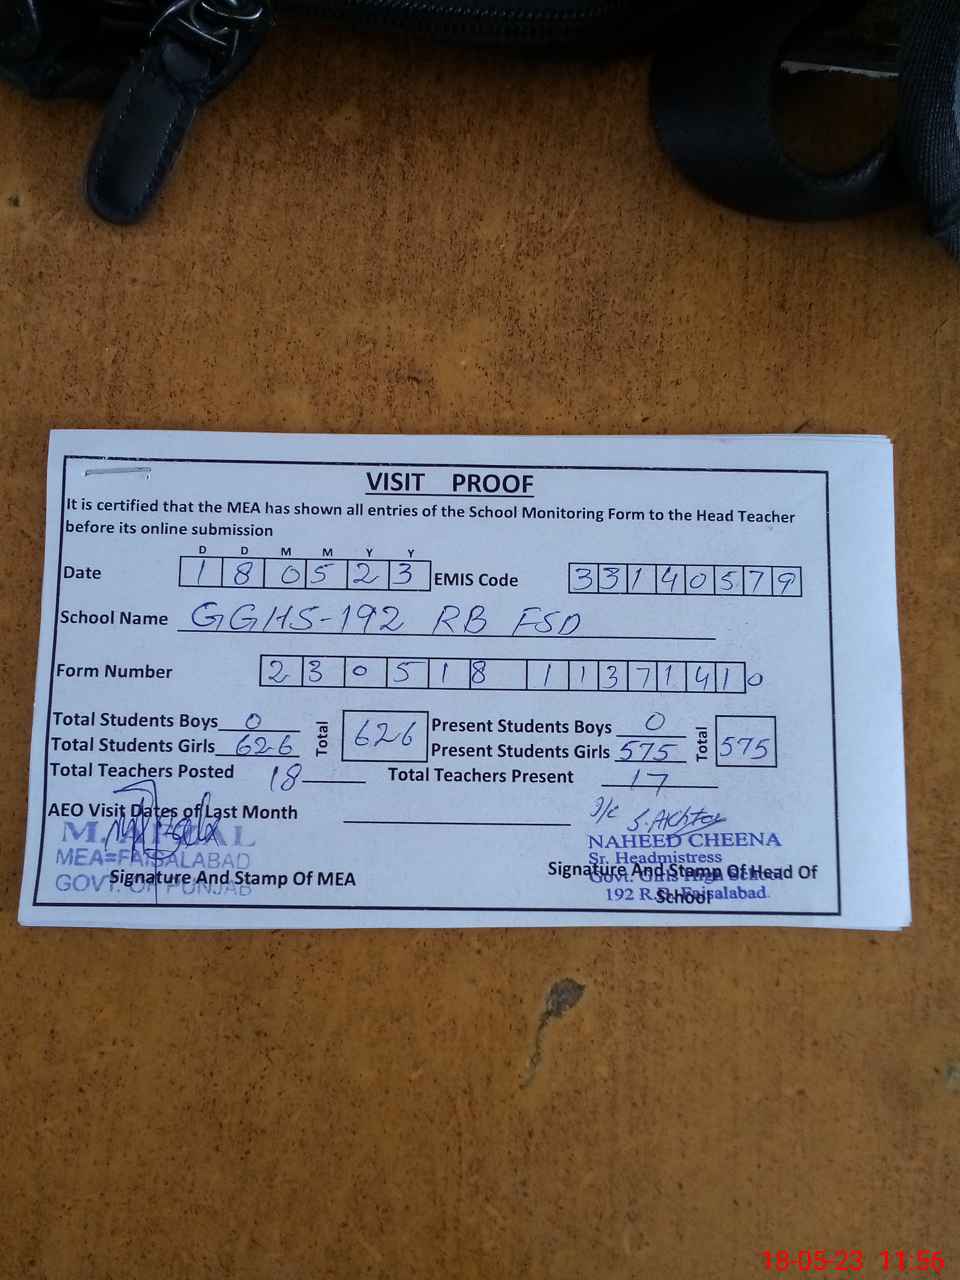 VISIT PROOF
It is certified that the MEA has shown all entries of the School Monitoring Form to the Head Teacher
before its online submission
D D M M Y Y
Date 1 8 0 5 2 3 EMIS Code 3 3 1 4 0 5 7 9
School Name GGHS-192 RB FSD
Form Number 2 3 0 5 1 8 1 1 3 7 1 4 1 0
Total Students Boys 0 Total 626 Present Students Boys 0 Total 575
Total Students Girls 626 Present Students Girls 575
Total Teachers Posted 18 Total Teachers Present 17
AEO Visit Dates of Last Month
I/C S. Akhtar
NAHEED CHEENA
MEA=FAISALABAD Sr. Headmistress
GOVT. OF PUNJAB Govt. Girls High School
Signature And Stamp Of MEA Signature And Stamp Of Head Of
School
192 R.B. Faisalabad.
18-05-23 11:56